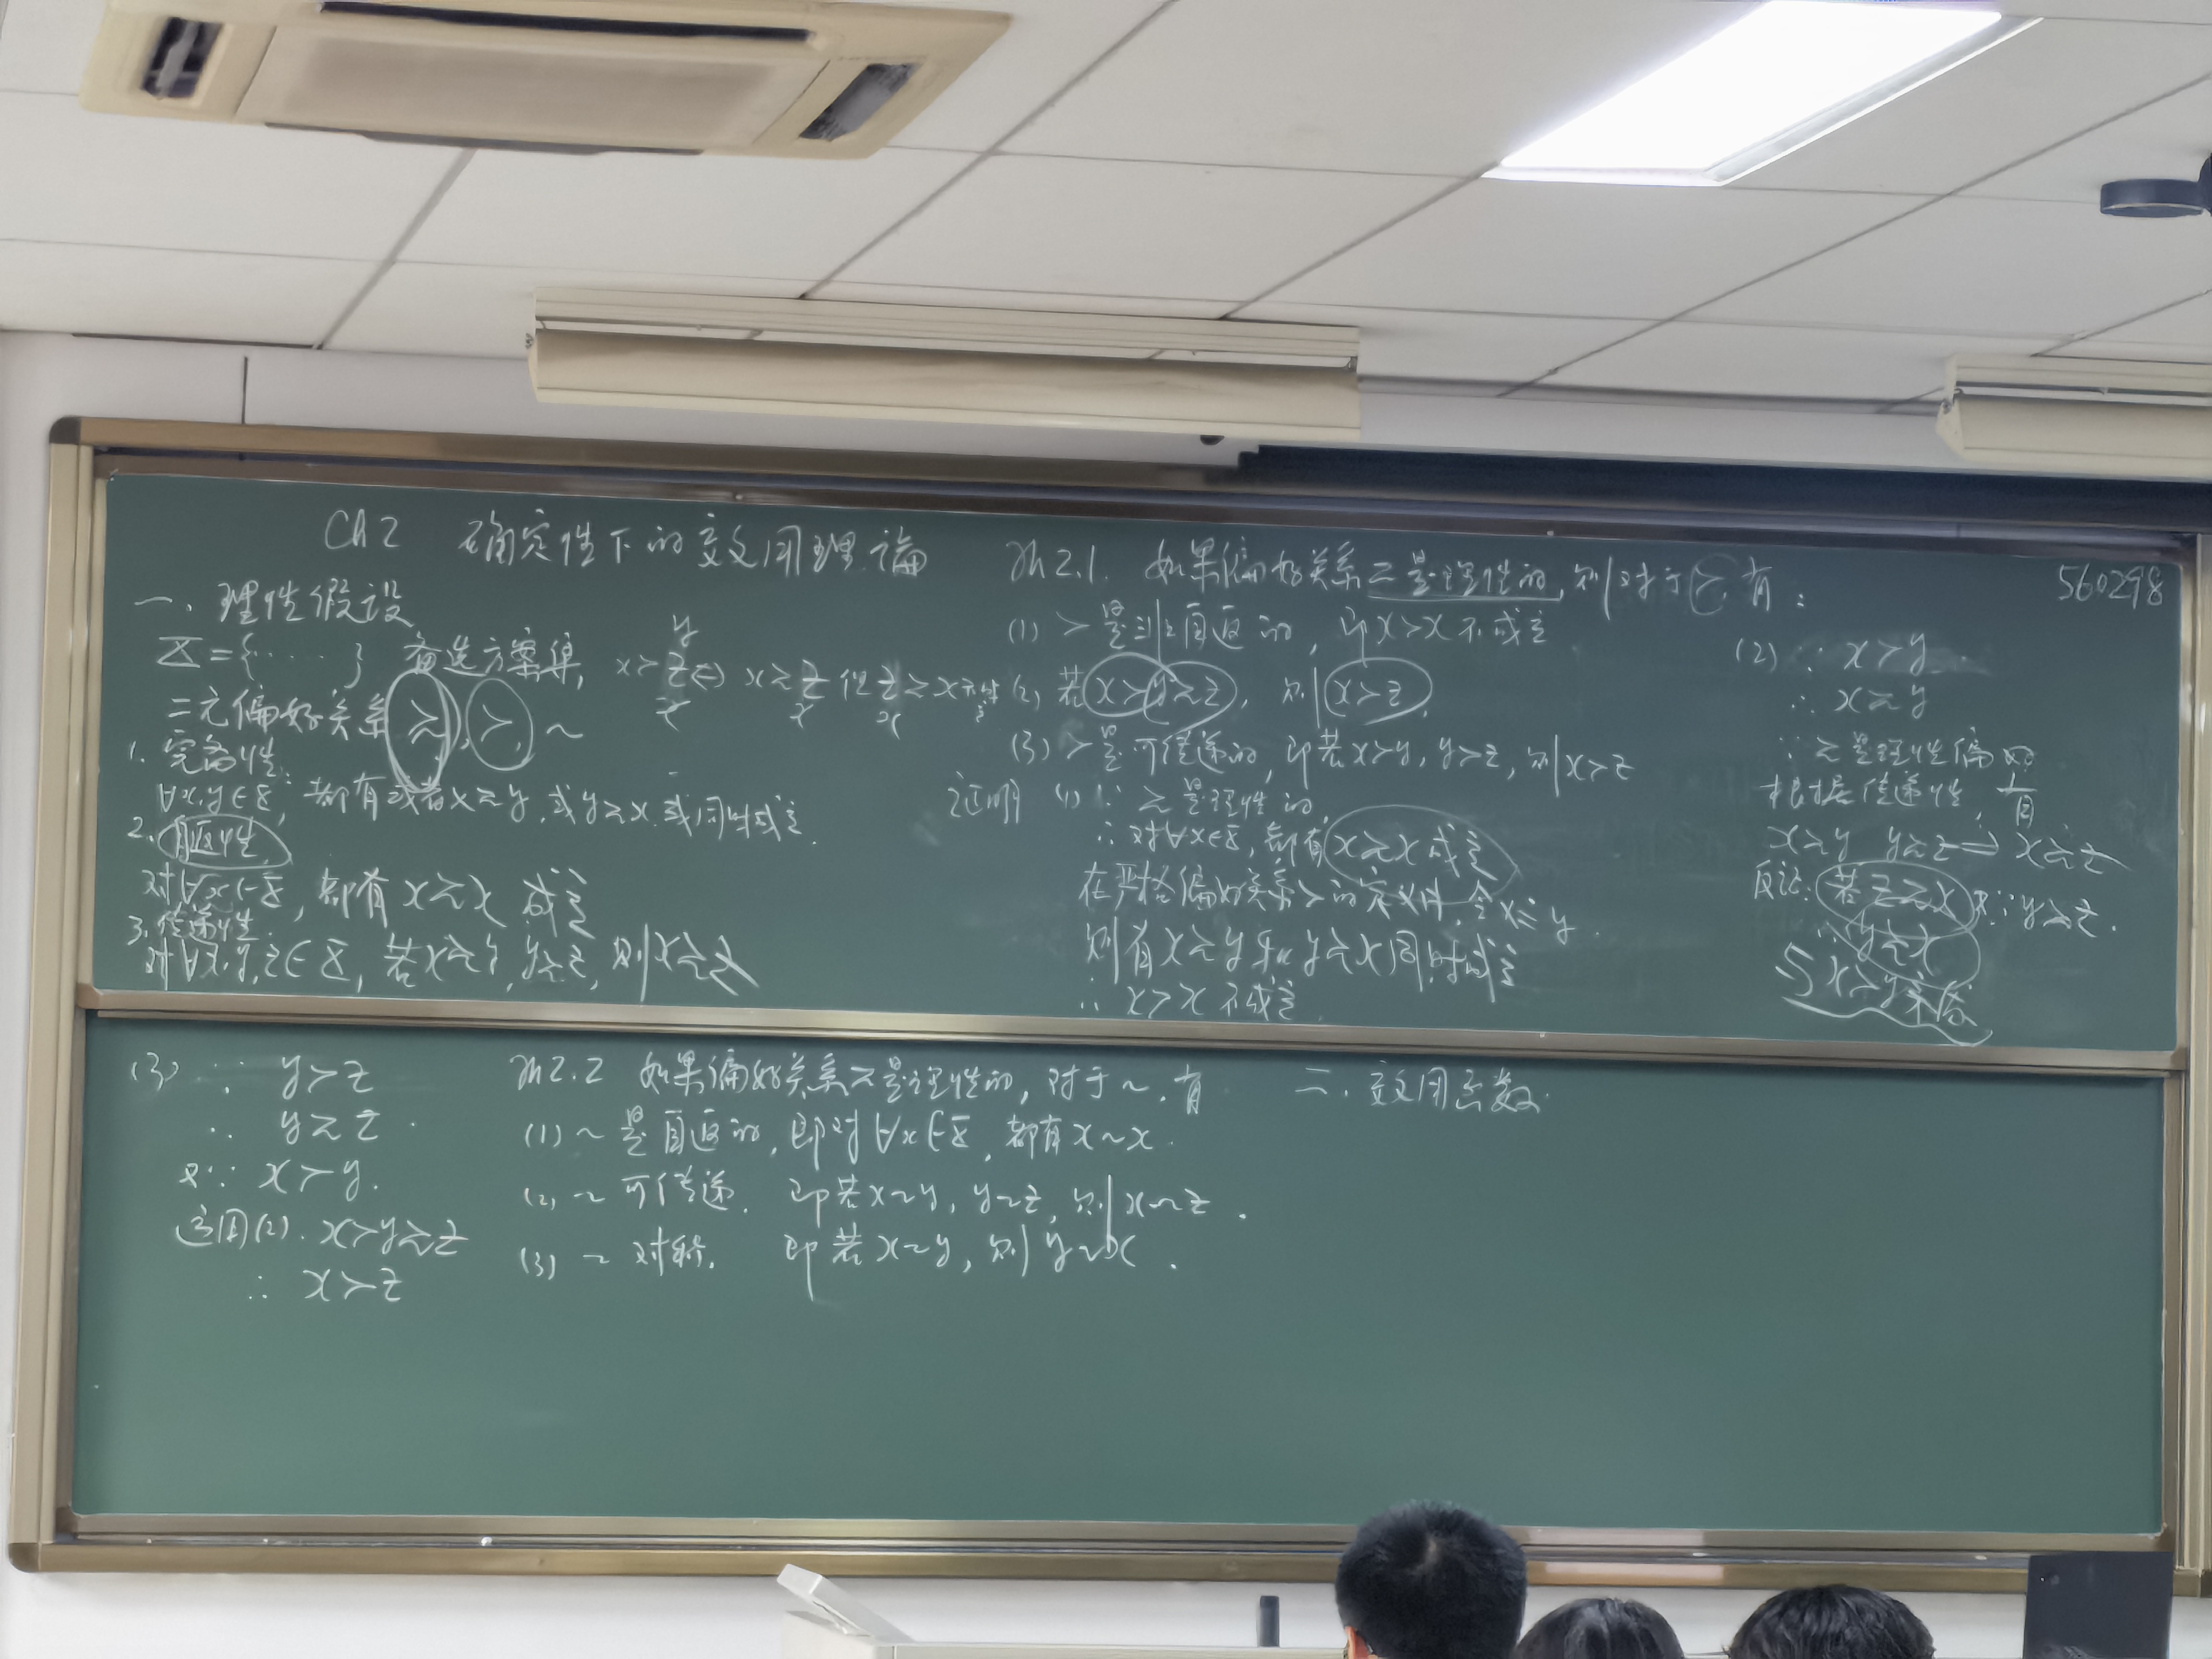 Ch2 确定性下的效用理论
一、理性假设
X={....} 备选方案集,
二元偏好关系 ≿, ≻, ~
y
x≻z⇔x≿z但z≿x不成立
x x x
1. 完备性:
∀x,y∈X, 都有或者x≿y,或y≿x,或同时成立.
2. 自返性,
对∀x∈X, 都有x≿x 成立
3. 传递性.
对∀x,y,z∈X, 若x≿y, y≿z, 则x≿z
Th2.1. 如果偏好关系≿是理性的,则对于≻,有:
(1) ≻是非自返的, 即x≻x不成立
(2) 若x≻y≿z, 则x≻z,
(3) ≻是可传递的, 即若x≻y, y≻z, 则x≻z
证明 (1) ∵ ≿是理性的,
∴ 对∀x∈X, 都有x≿x成立
在严格偏好关系≻的定义中,令x=y.
则有x≿y和y≿x同时成立
∴ x≻x 不成立.
560298
(2) ∵ x≻y
∴ x≿y
∵ ≿是理性偏好
根据传递性,有
x≿y y≿z⇒x≿z
反证: 若z≿x 又∵y≿z.
∴ y≿x
与x≻y矛盾
(3) ∵ y≻z
∴ y≿z.
又∵ x≻y.
运用(2). x≻y≿z
∴ x≻z
Th2.2 如果偏好关系≿是理性的, 对于~.有
(1) ~是自返的, 即对∀x∈X, 都有x~x.
(2) ~可传递. 即若x~y, y~z, 则x~z.
(3) ~对称. 即若x~y, 则y~x.
二. 效用函数.